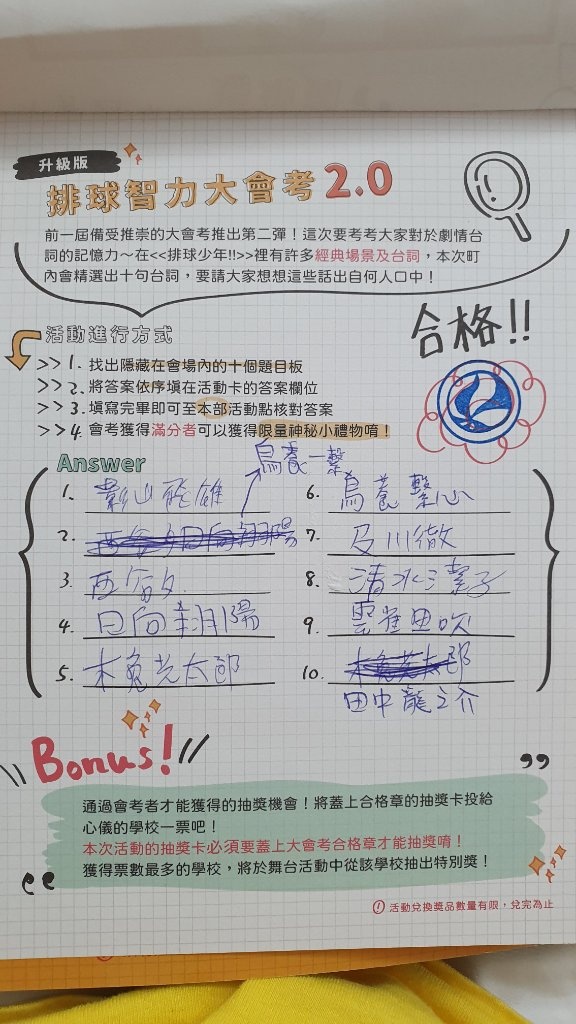 升級版
排球智力大會考2.0
前一屆備受推崇的大會考推出第二彈！這次要考考大家對於劇情台
詞的記憶力～在<<排球少年!!>>裡有許多經典場景及台詞，本次町
內會精選出十句台詞，要請大家想想這些話出自何人口中！
合格!!
活動進行方式
>>1. 找出隱藏在會場內的十個題目板
>>2. 將答案依序填在活動卡的答案欄位
>>3. 填寫完畢即可至本部活動點核對答案
>>4. 會考獲得滿分者可以獲得限量神秘小禮物唷！
Answer
烏養一繫
1. 影山飛雄
2. 西谷夕日向翔陽
3. 西谷夕
4. 日向翔陽
5. 木兔光太郎
6. 烏養繫心
7. 及川徹
8. 清水潔子
9. 雲雀田吹
10. 木兔光太郎
田中龍之介
Bonus!
通過會考者才能獲得的抽獎機會！將蓋上合格章的抽獎卡投給
心儀的學校一票吧！
本次活動的抽獎卡必須要蓋上大會考合格章才能抽獎唷！
獲得票數最多的學校，將於舞台活動中從該學校抽出特別獎！
! 活動兌換獎品數量有限，兌完為止